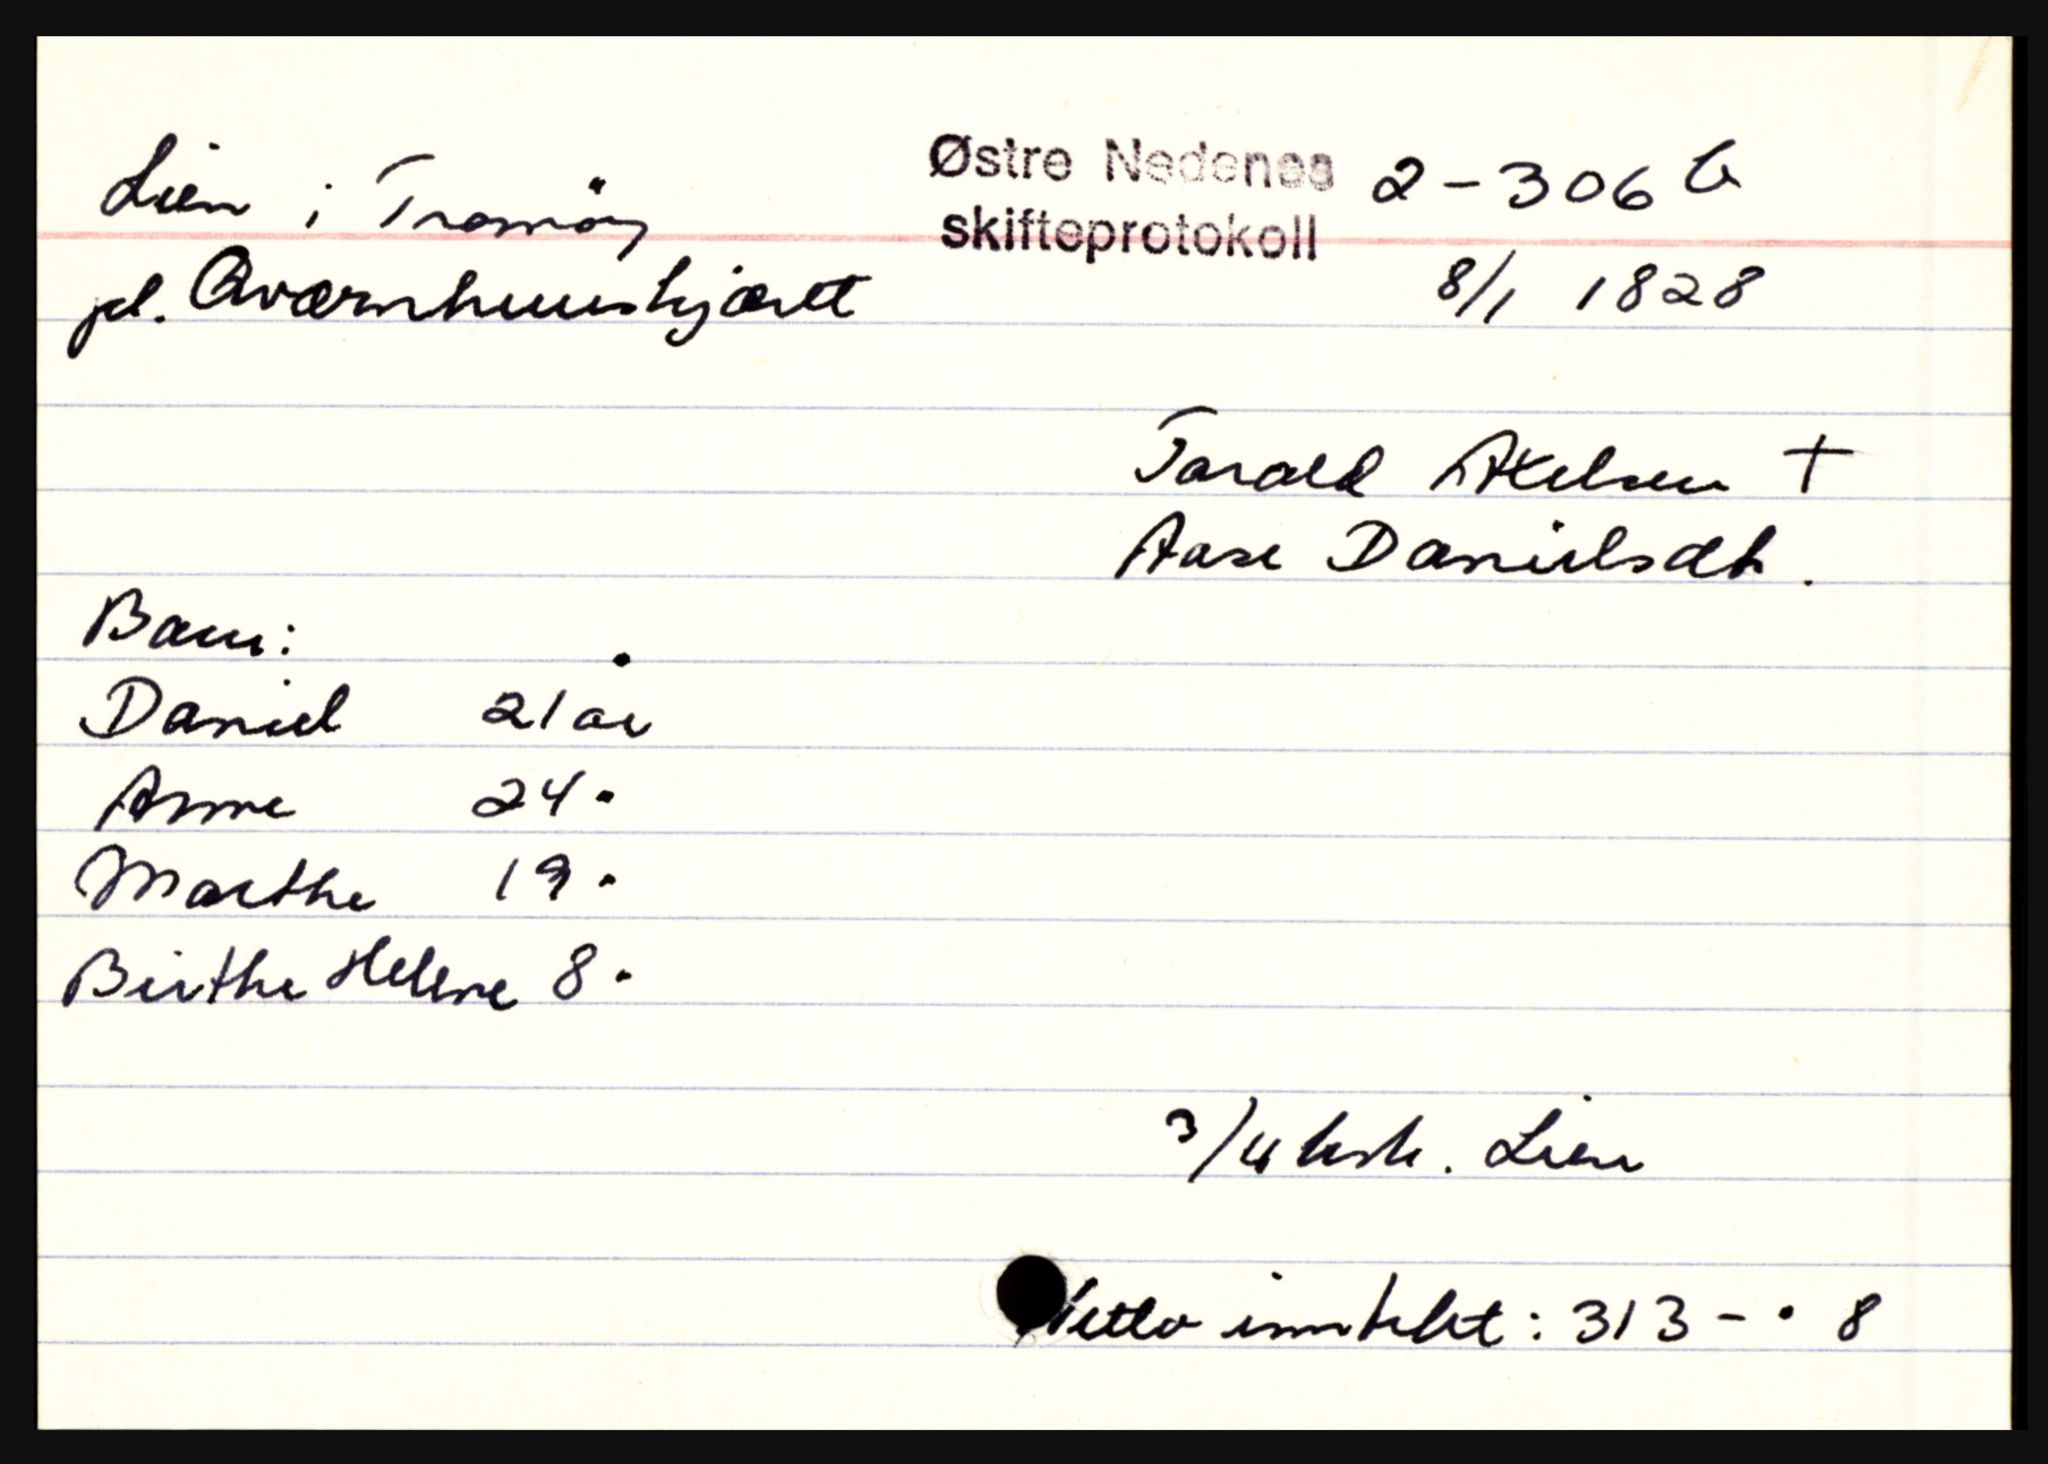 Lien i Tromöy
Østre Nedenes
skifteprotokoll
2-306 b
pl. Qværnhuuskjærtt
8/1 1828
Tarald Axelsen †
Aase Danielsdt.
Barn:
Daniel 21 år
Anne 24 "
Marthe 19 "
Birthe Helene 8 "
3/4 hsk. Lien
Netto inntekt: 313 - " 8